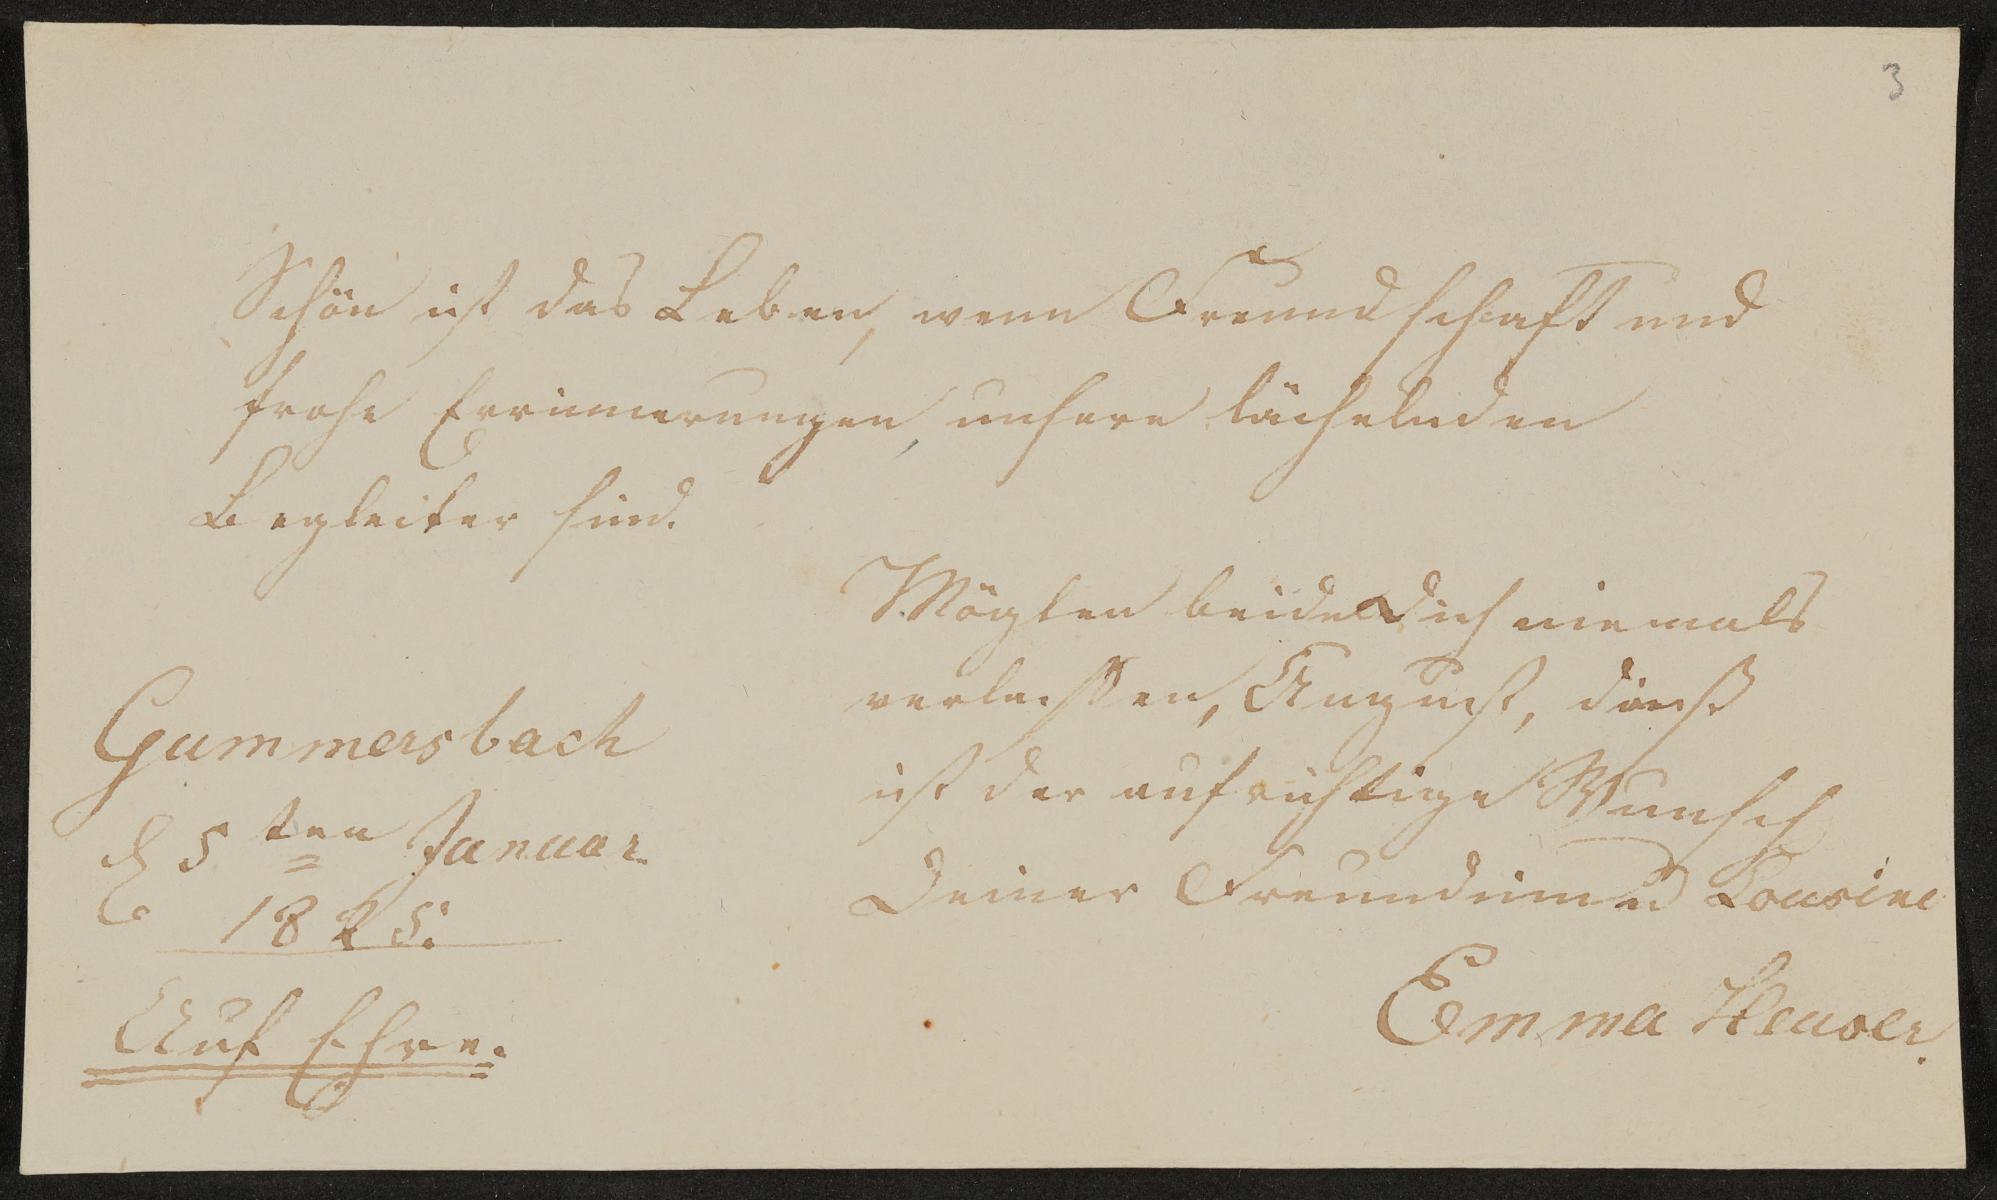 3
Schön ist das Leben, wenn Freundschaft und
frohe Errinnerungen, unsere lächelnden
Begleiter sind.
Mögten beide Dich niemals
verlassen, August, dieß
ist der aufrichtige Wunsch
Deiner Freundinn u Cousine
Emma Heuser.
Gummersbach
d 5ten Januar
1825.
Auf Ehre.